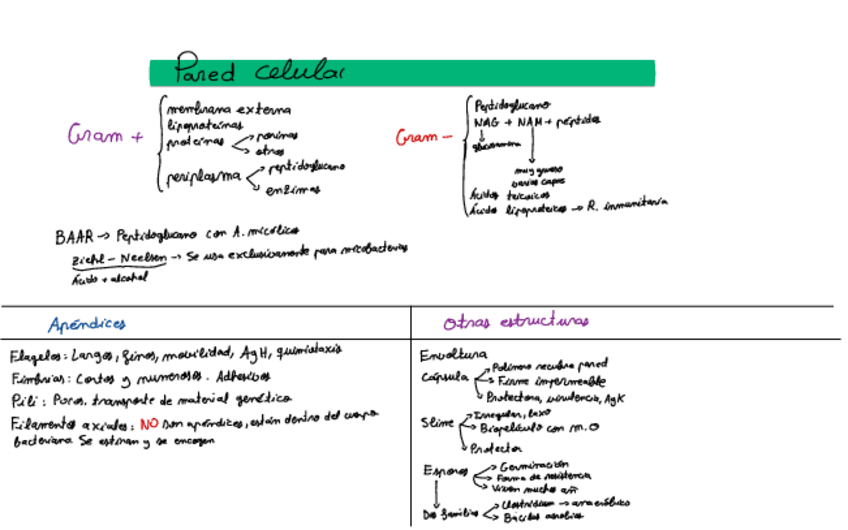 Pared celular
Gram +
membrana externa
lipoproteínas
proteínas
porinas
otros
periplasma
peptidoglucano
enzimas
Gram -
Peptidoglucano
NAG + NAM + péptidos
glucosamina
muy grueso
varias capas
Ácidos teicoicos
Ácido lipoproteicos → R. inmunitaria
BAAR → Peptidoglucano con A. micólico
Ziehl - Neelsen → Se usa exclusivamente para micobacterias
Ácido + alcohol
Apéndices
Flagelos: Largos, finos, movilidad, AgH, quimiotaxis
Fimbrias: Cortos y numerosos. Adhesivos
Pili: Pocos. transporte de material genético
Filamentos axiales: NO son apéndices, están dentro del cuerpo
bacteriano Se estiran y se encogen
Otras estructuras
Envoltura
Cápsula
Polímero recubre pared
Firme impermeable
Protectora, virulencia, AgK
Slime
Irregular, laxo
Biopelícula con m.o
Protector
Esporas
Germinación
Forma de resistencia
Viven muchos añ
Dos familias
Clostridium → anaeróbico
Bacillus